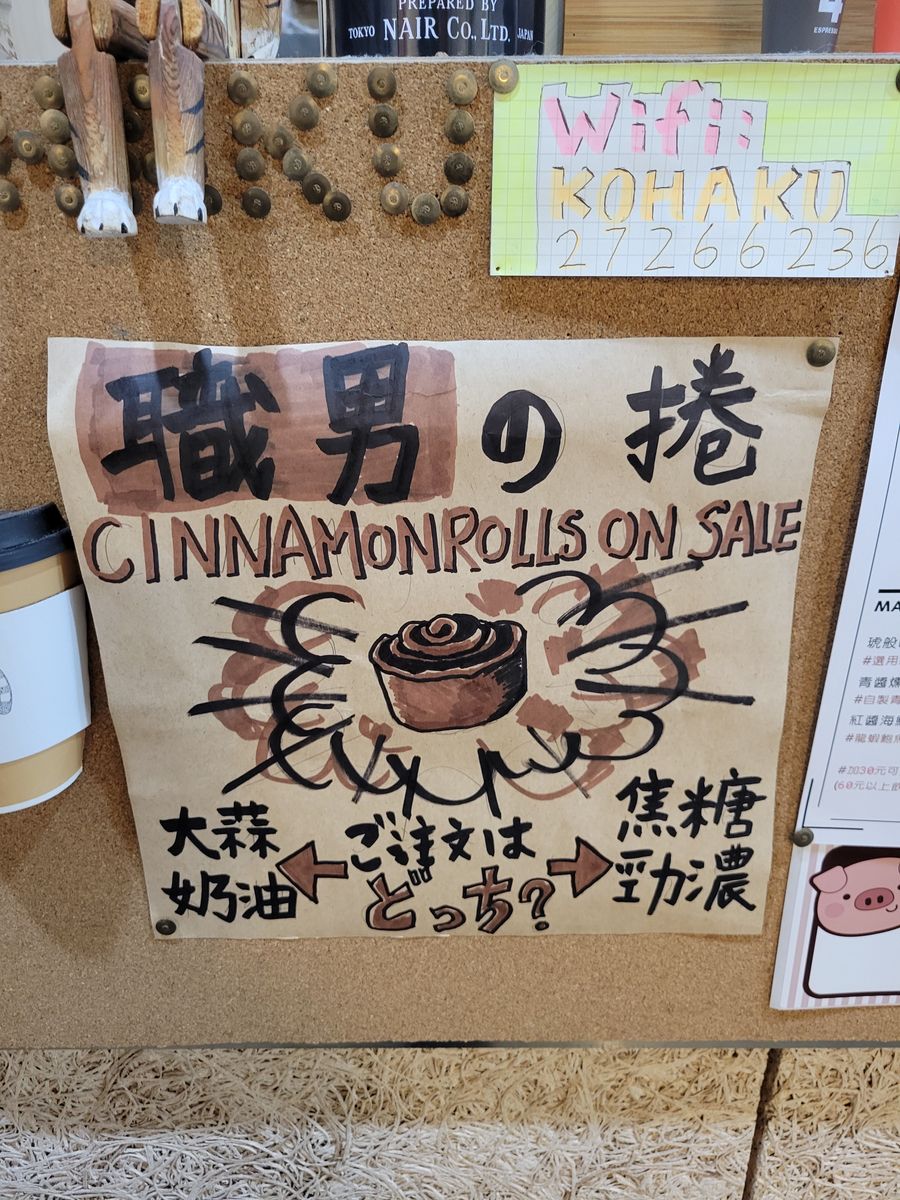 PREPARED BY
TOKYO NAIR CO., LTD. JAPAN
ESPRESS
KU
Wifi:
KOHAKU
27266236
職男の捲
CINNAMONROLLS ON SALE
大蒜
奶油
ご注文は
どっち?
焦糖
勁濃
MA
琥般
#選用
青醬燉
#自製青
紅醬海鮮
#龍蝦鮑魚
#加30元可
(60元以上飲